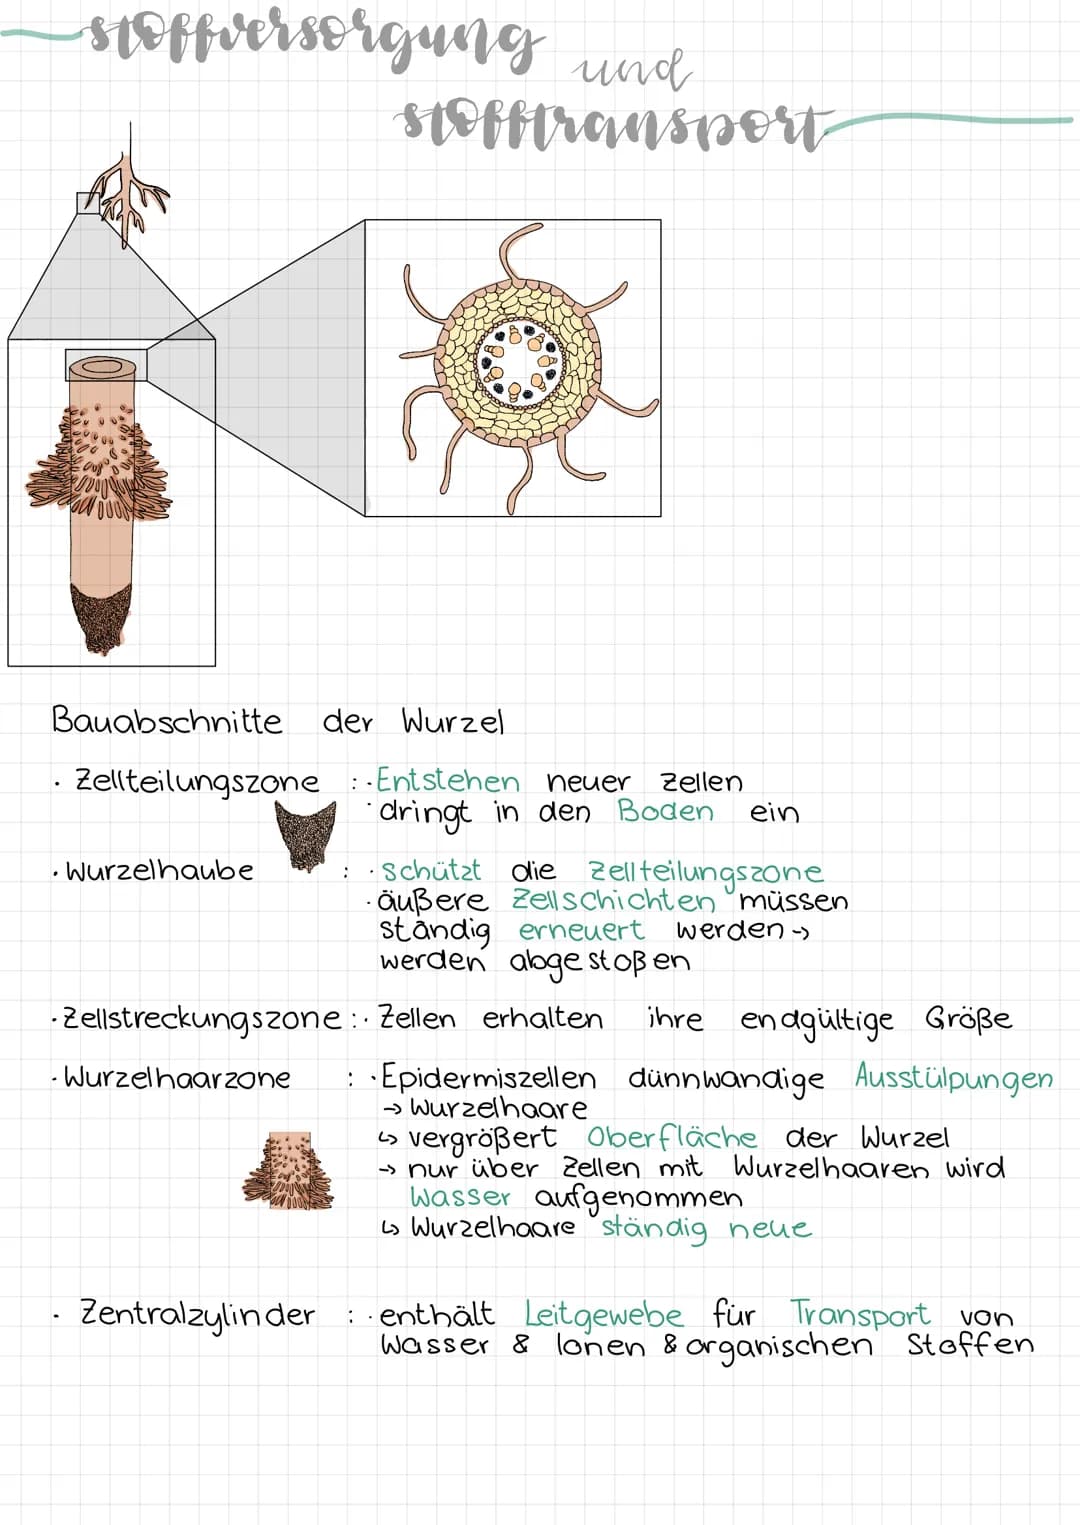 stoffversorgung
und
stofftransport
Bauabschnitte der Wurzel
· Zellteilungszone : · Entstehen neuer Zellen
· dringt in den Boden ein
· Wurzelhaube : · schützt die Zellteilungszone
· äußere Zellschichten müssen
ständig erneuert werden →
werden abgestoßen
· Zellstreckungszone : · Zellen erhalten ihre endgültige Größe
· Wurzelhaarzone : · Epidermiszellen dünnwandige Ausstülpungen
→ Wurzelhaare
↳ vergrößert Oberfläche der Wurzel
→ nur über Zellen mit Wurzelhaaren wird
Wasser aufgenommen
↳ Wurzelhaare ständig neue
· Zentralzylinder : · enthält Leitgewebe für Transport von
Wasser & Ionen & organischen Stoffen